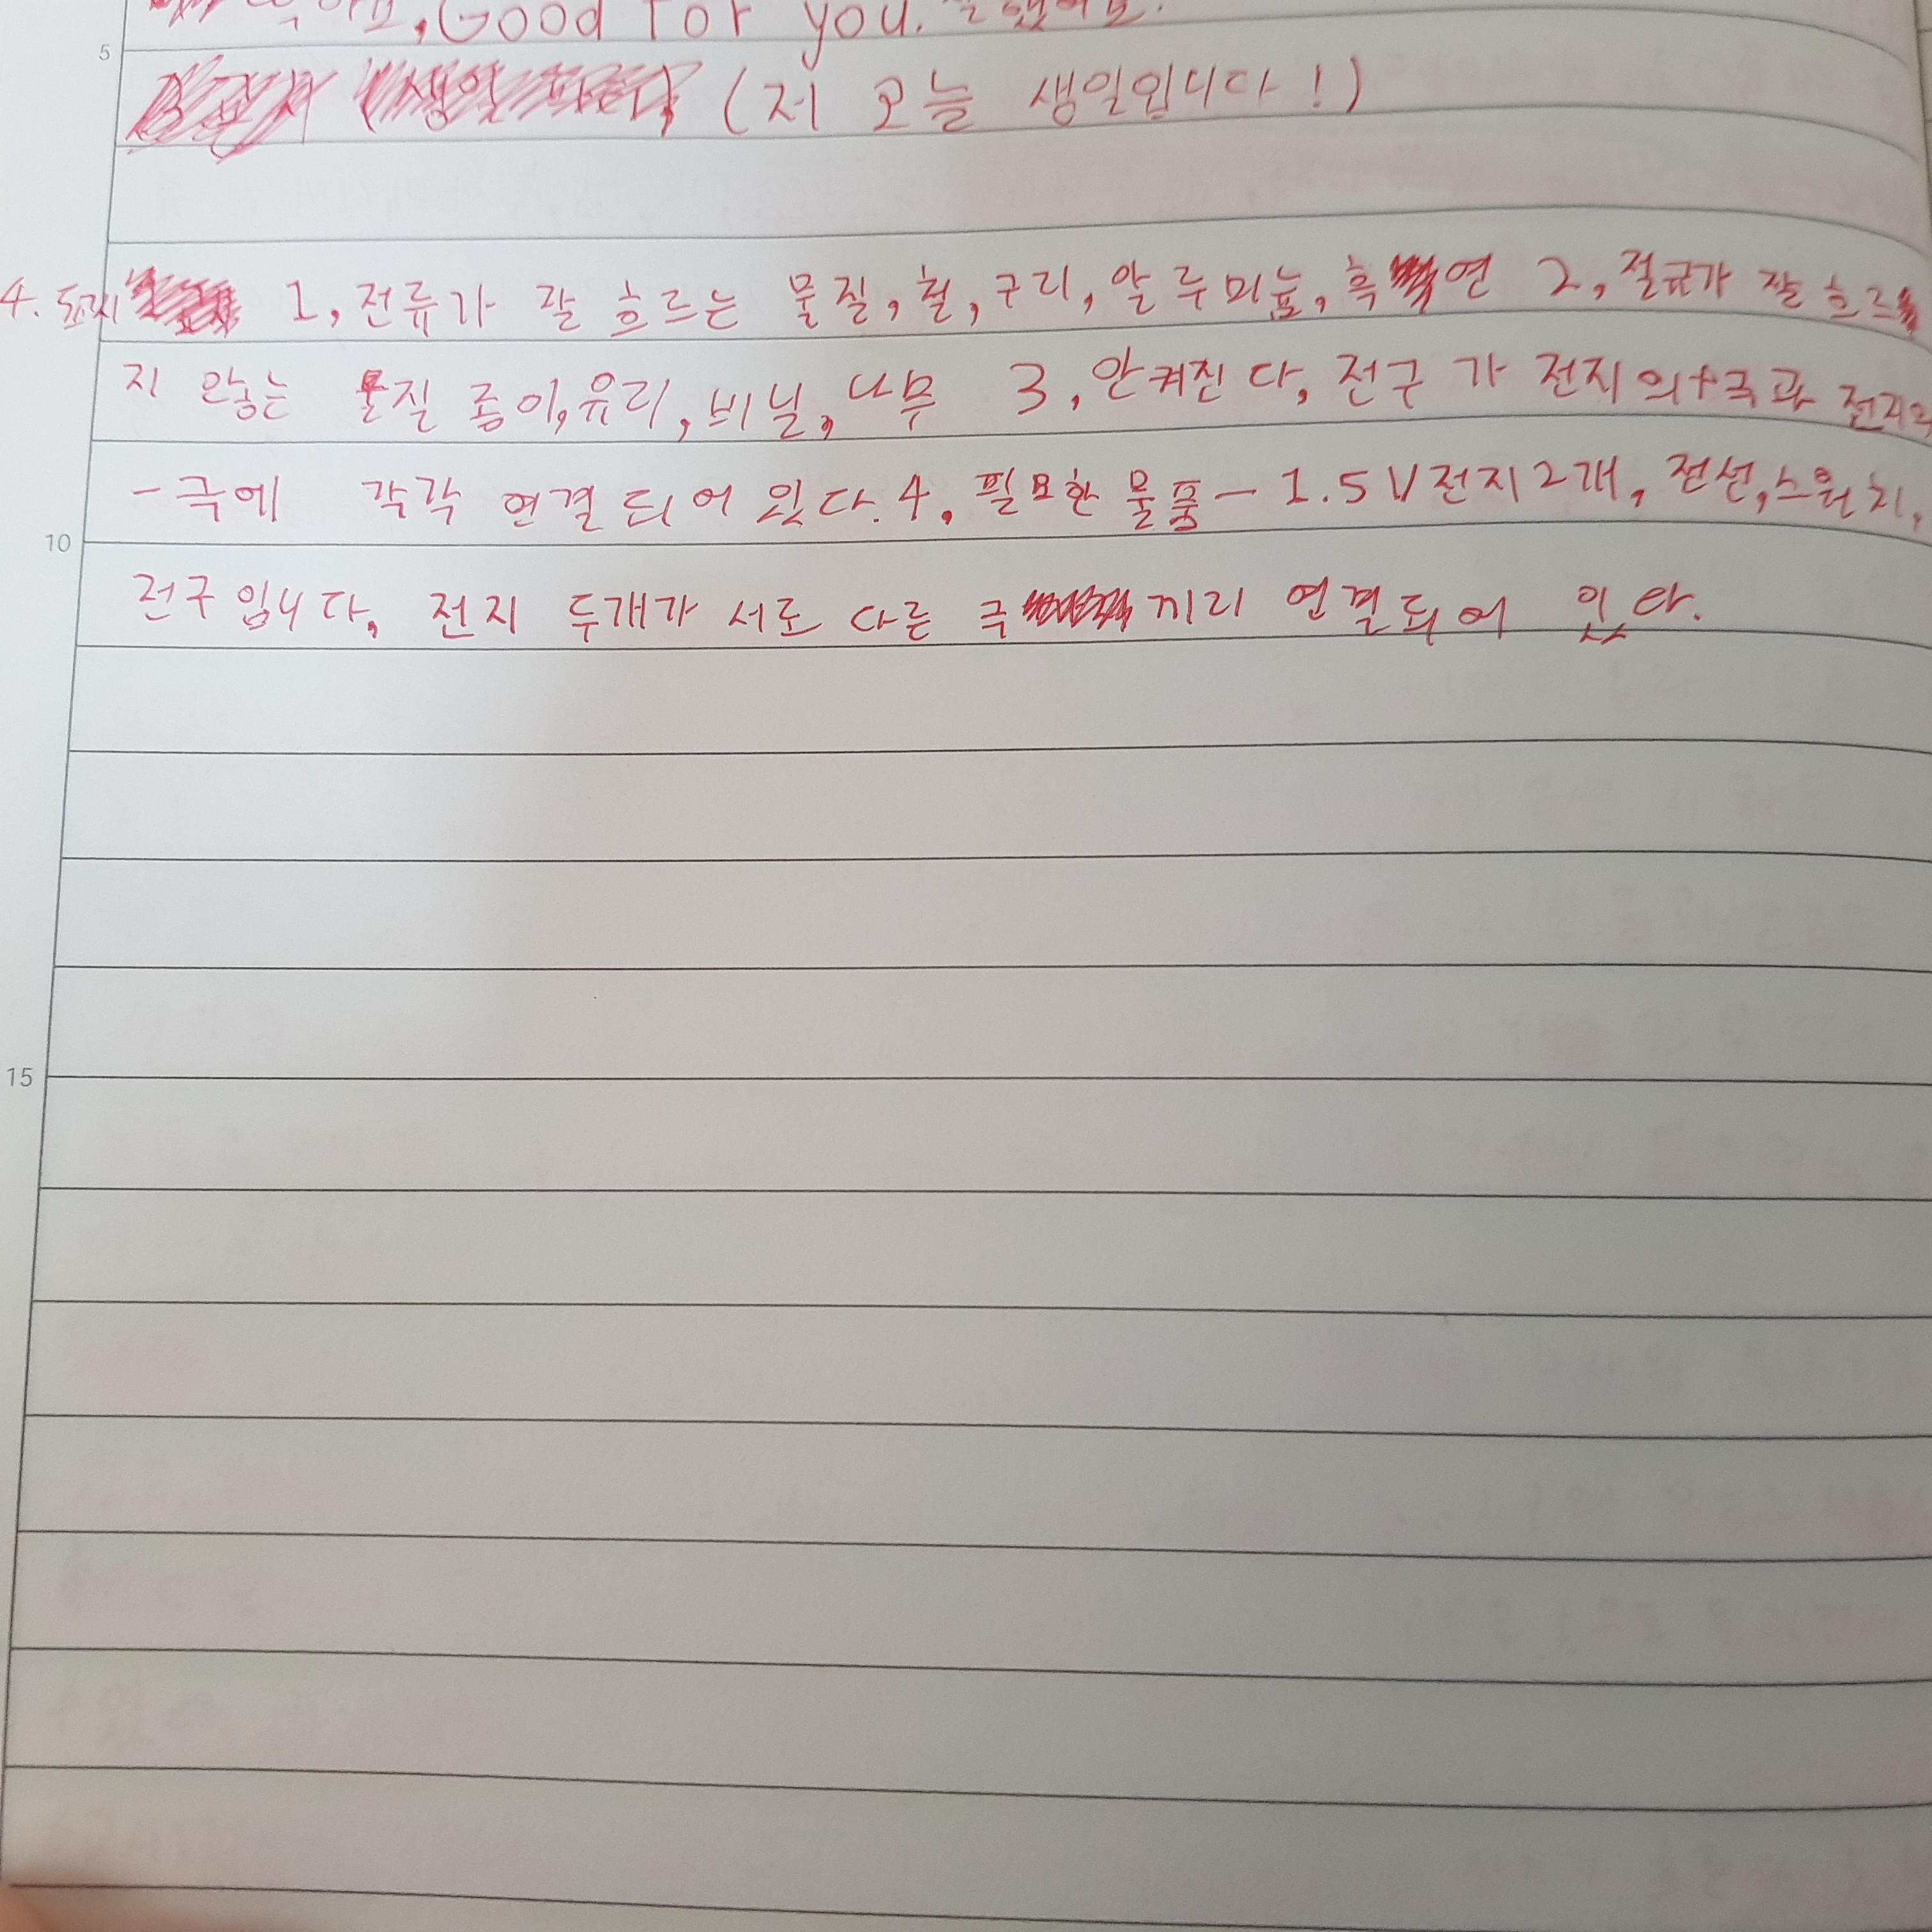 , Good for you.
5
(저 오늘 생일입니다!)
4. 1, 전류가 잘 흐르는 물질, 철, 구리, 알루미늄, 흑연 2, 절규가 잘 흐르
지 않는 물질 종이, 유리, 비닐, 나무 3, 안켜진다, 전구가 전지의+극과 전지의
-극에 각각 연결되어 있다. 4, 필요한 물품 - 1.5V전지2개, 전선, 스위치,
10
전구입니다, 전지 두개가 서로 다른 극끼리 연결되어 있다.
15